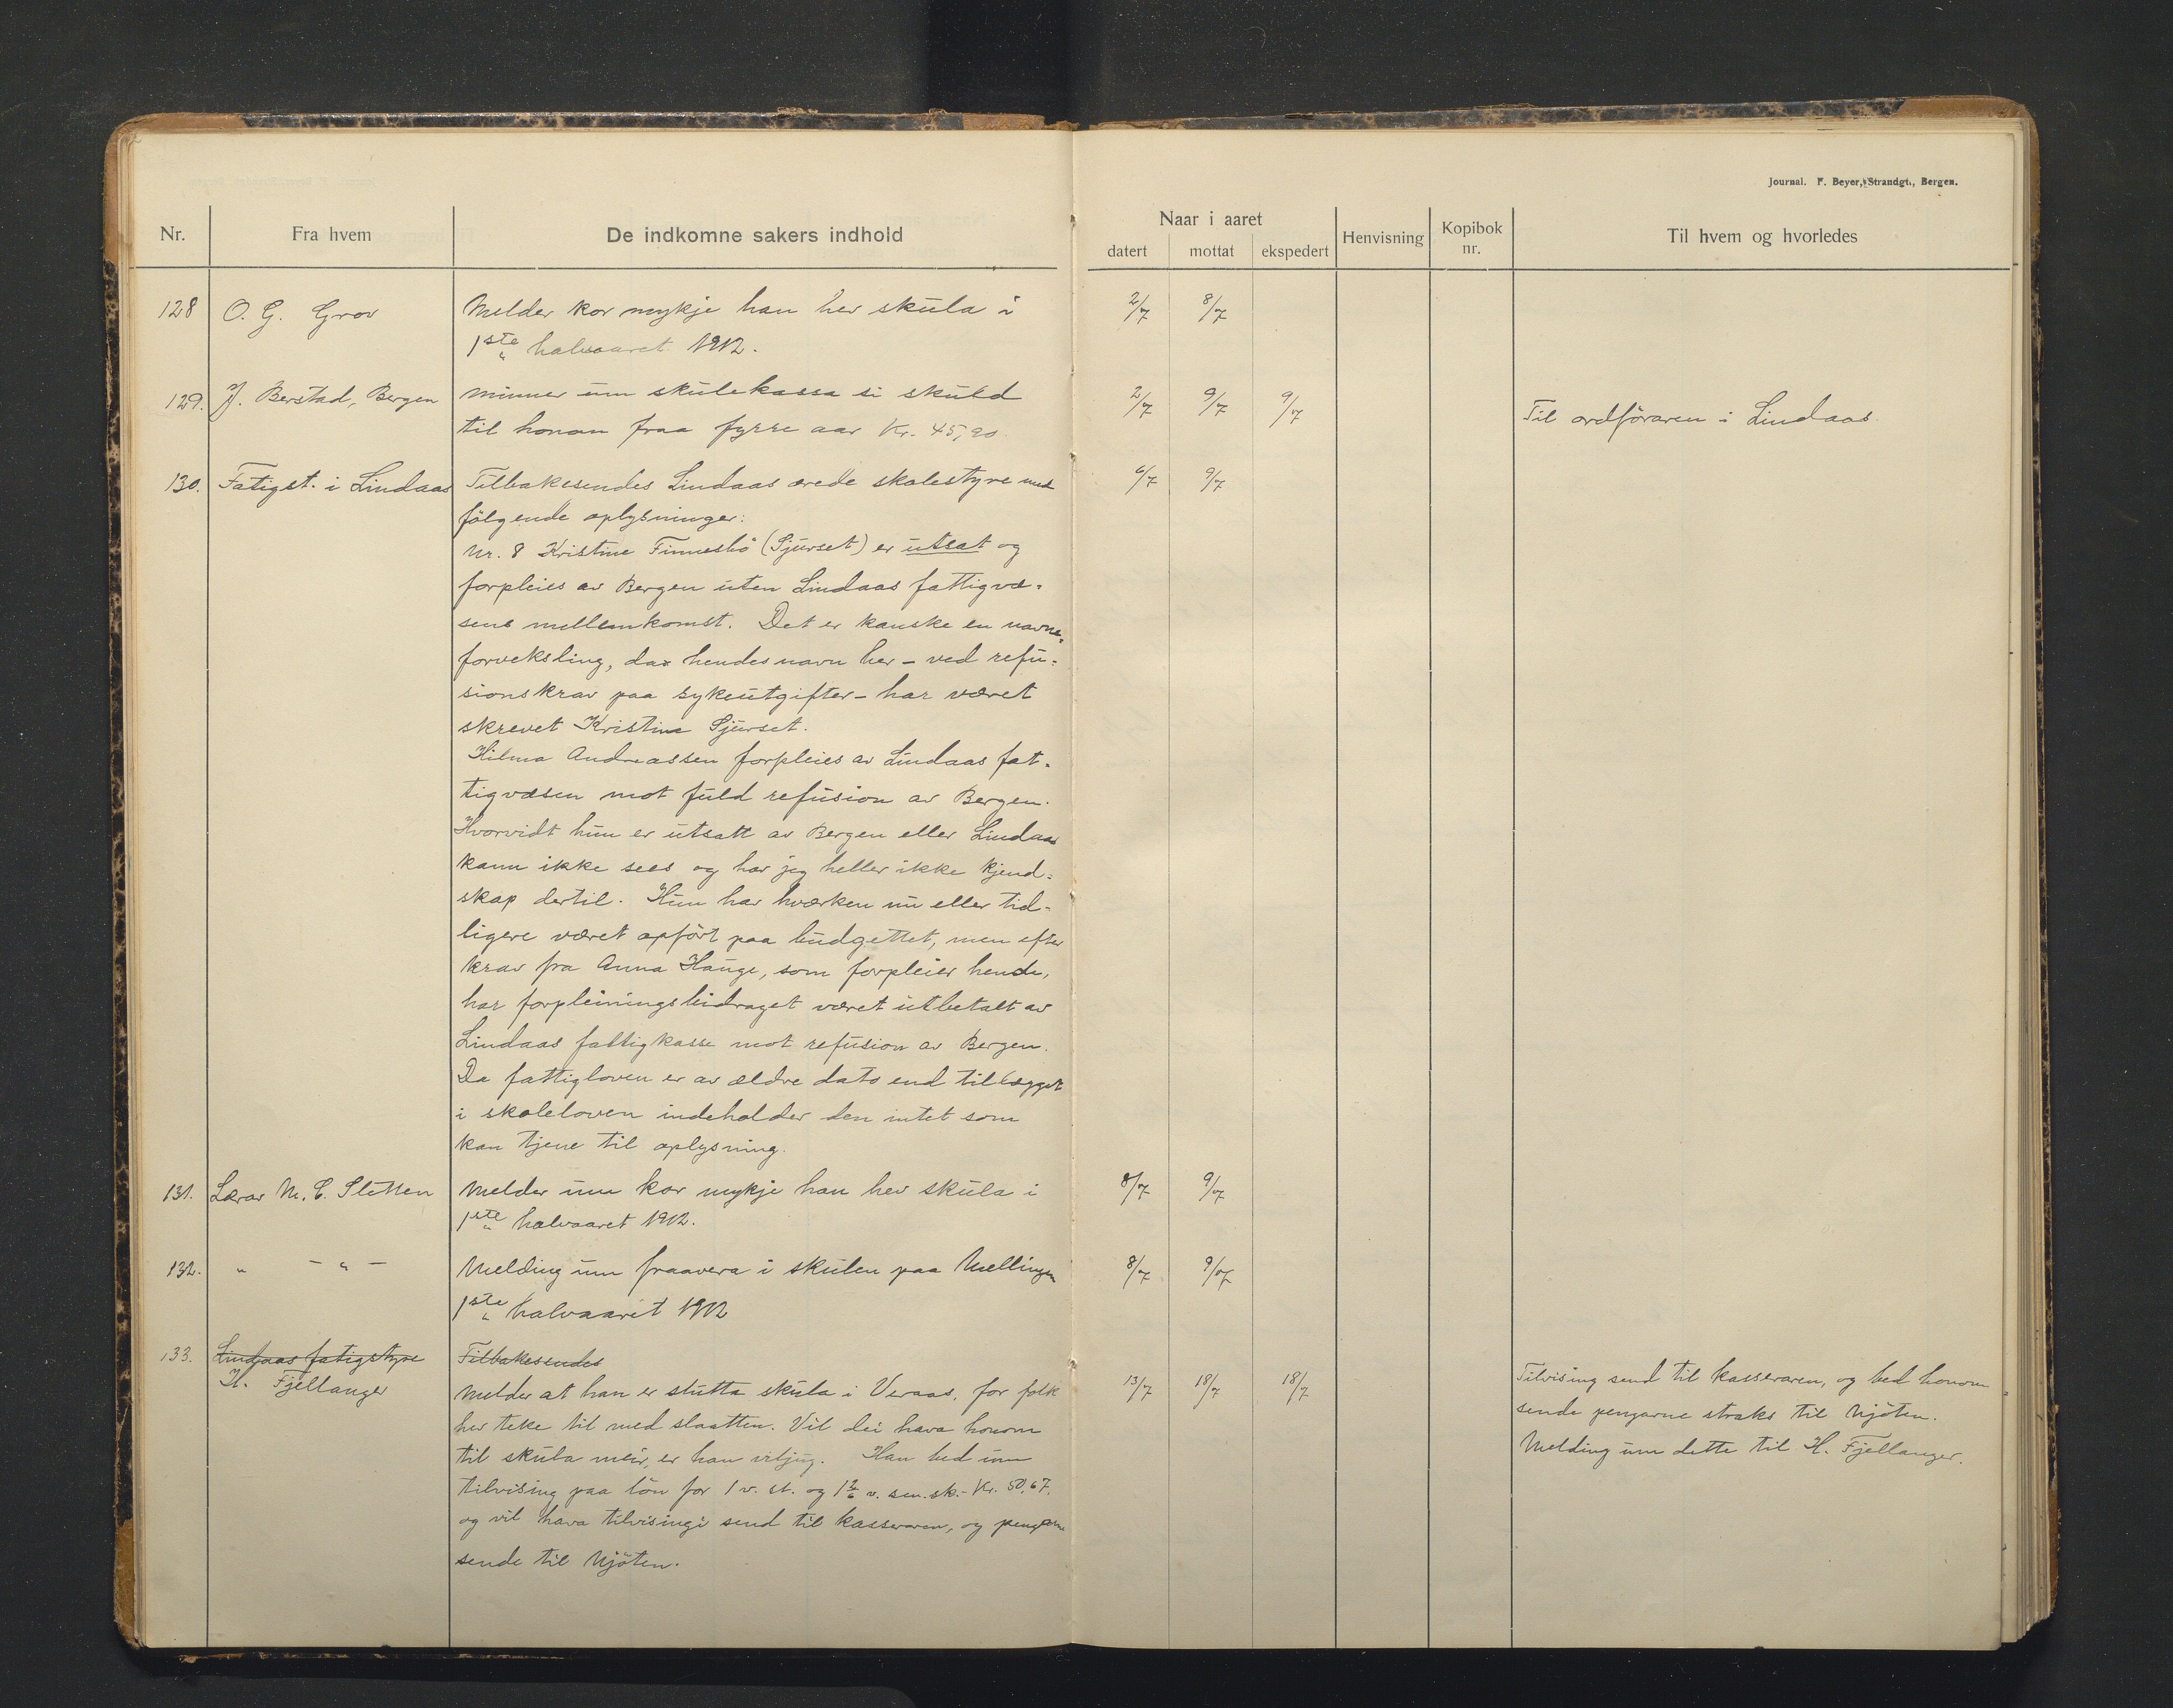 Journal. F. Beyer, Strandgt., Bergen.
Nr. Fra hvem De indkomne sakers indhold Naar i aaret Henvisning Kopibok nr. Til hvem og hvorledes
datert mottat ekspedert
128 O. G. Grov Melder kor mykje han hev skula i 2/7 8/7
1ste halvaaret 1912.
129. J. Berstad, Bergen Minner um skulekassa si skuld 2/7 9/7 9/7 Til ordføraren i Lindaas
til honom fraa fyrre aar Kr. 45,90.
130. Fatigst. i Lindaas Tilbakesendes Lindaas ærede skolestyre med 6/7 9/7
følgende oplysninger:
Nr. 8 Kristine Finnesbö (Sjurset) er utsat og
forpleies av Bergen uten Lindaas fattigvæ-
sens mellemkomst. Det er kanske en navne-
forveksling, da hendes navn her – ved refu-
sionskrav paa sykeutgifter – har været
skrevet Kristine Sjurset.
Hilma Andreassen forpleies av Lindaas fat-
tigvæsen mot fuld refusion av Bergen.
Hvorvidt hun er utsatt av Bergen eller Lindaas
kann ikke sees og har jeg heller ikke kjend-
skap dertil. Hun har hværken nu eller tid-
ligere været opført paa budgettet, men efter
krav fra Anna Hauge, som forpleier hende,
har forpleiningsbidraget været utbetalt av
Lindaas fattigkasse mot refusion av Bergen.
Da fattigloven er av ældre dato end tillægget
i skoleloven indeholder den intet som
kan tjene til oplysning.
131. Lærar M. C. Sletten Melder um kor mykje han hev skula i 8/7 9/7
1ste halvaaret 1912.
132. " – " – Melding um fraavera i skulen paa Mellingen 8/7 9/7
1ste halvaaret 1912
133. Lindaas fatigstyre Tilbakesendes
H. Fjellanger Melder at han er slutta skula i Veraas, for folk 13/7 18/7 18/7 Tilvising send til kasseraren, og bed honom
hev teke til med slaatten. Vil dei hava honom sende pengarne straks til Mjöten.
til skula meir, er han viljug. Han bed um Melding um dette til H. Fjellanger.
tilvising paa lön for 1 v. st. og 1 2/6 v. sm. sk. – Kr. 50,67,
og vil hava tilvisingi send til kasseraren, og pengarne
sende til Mjöten.